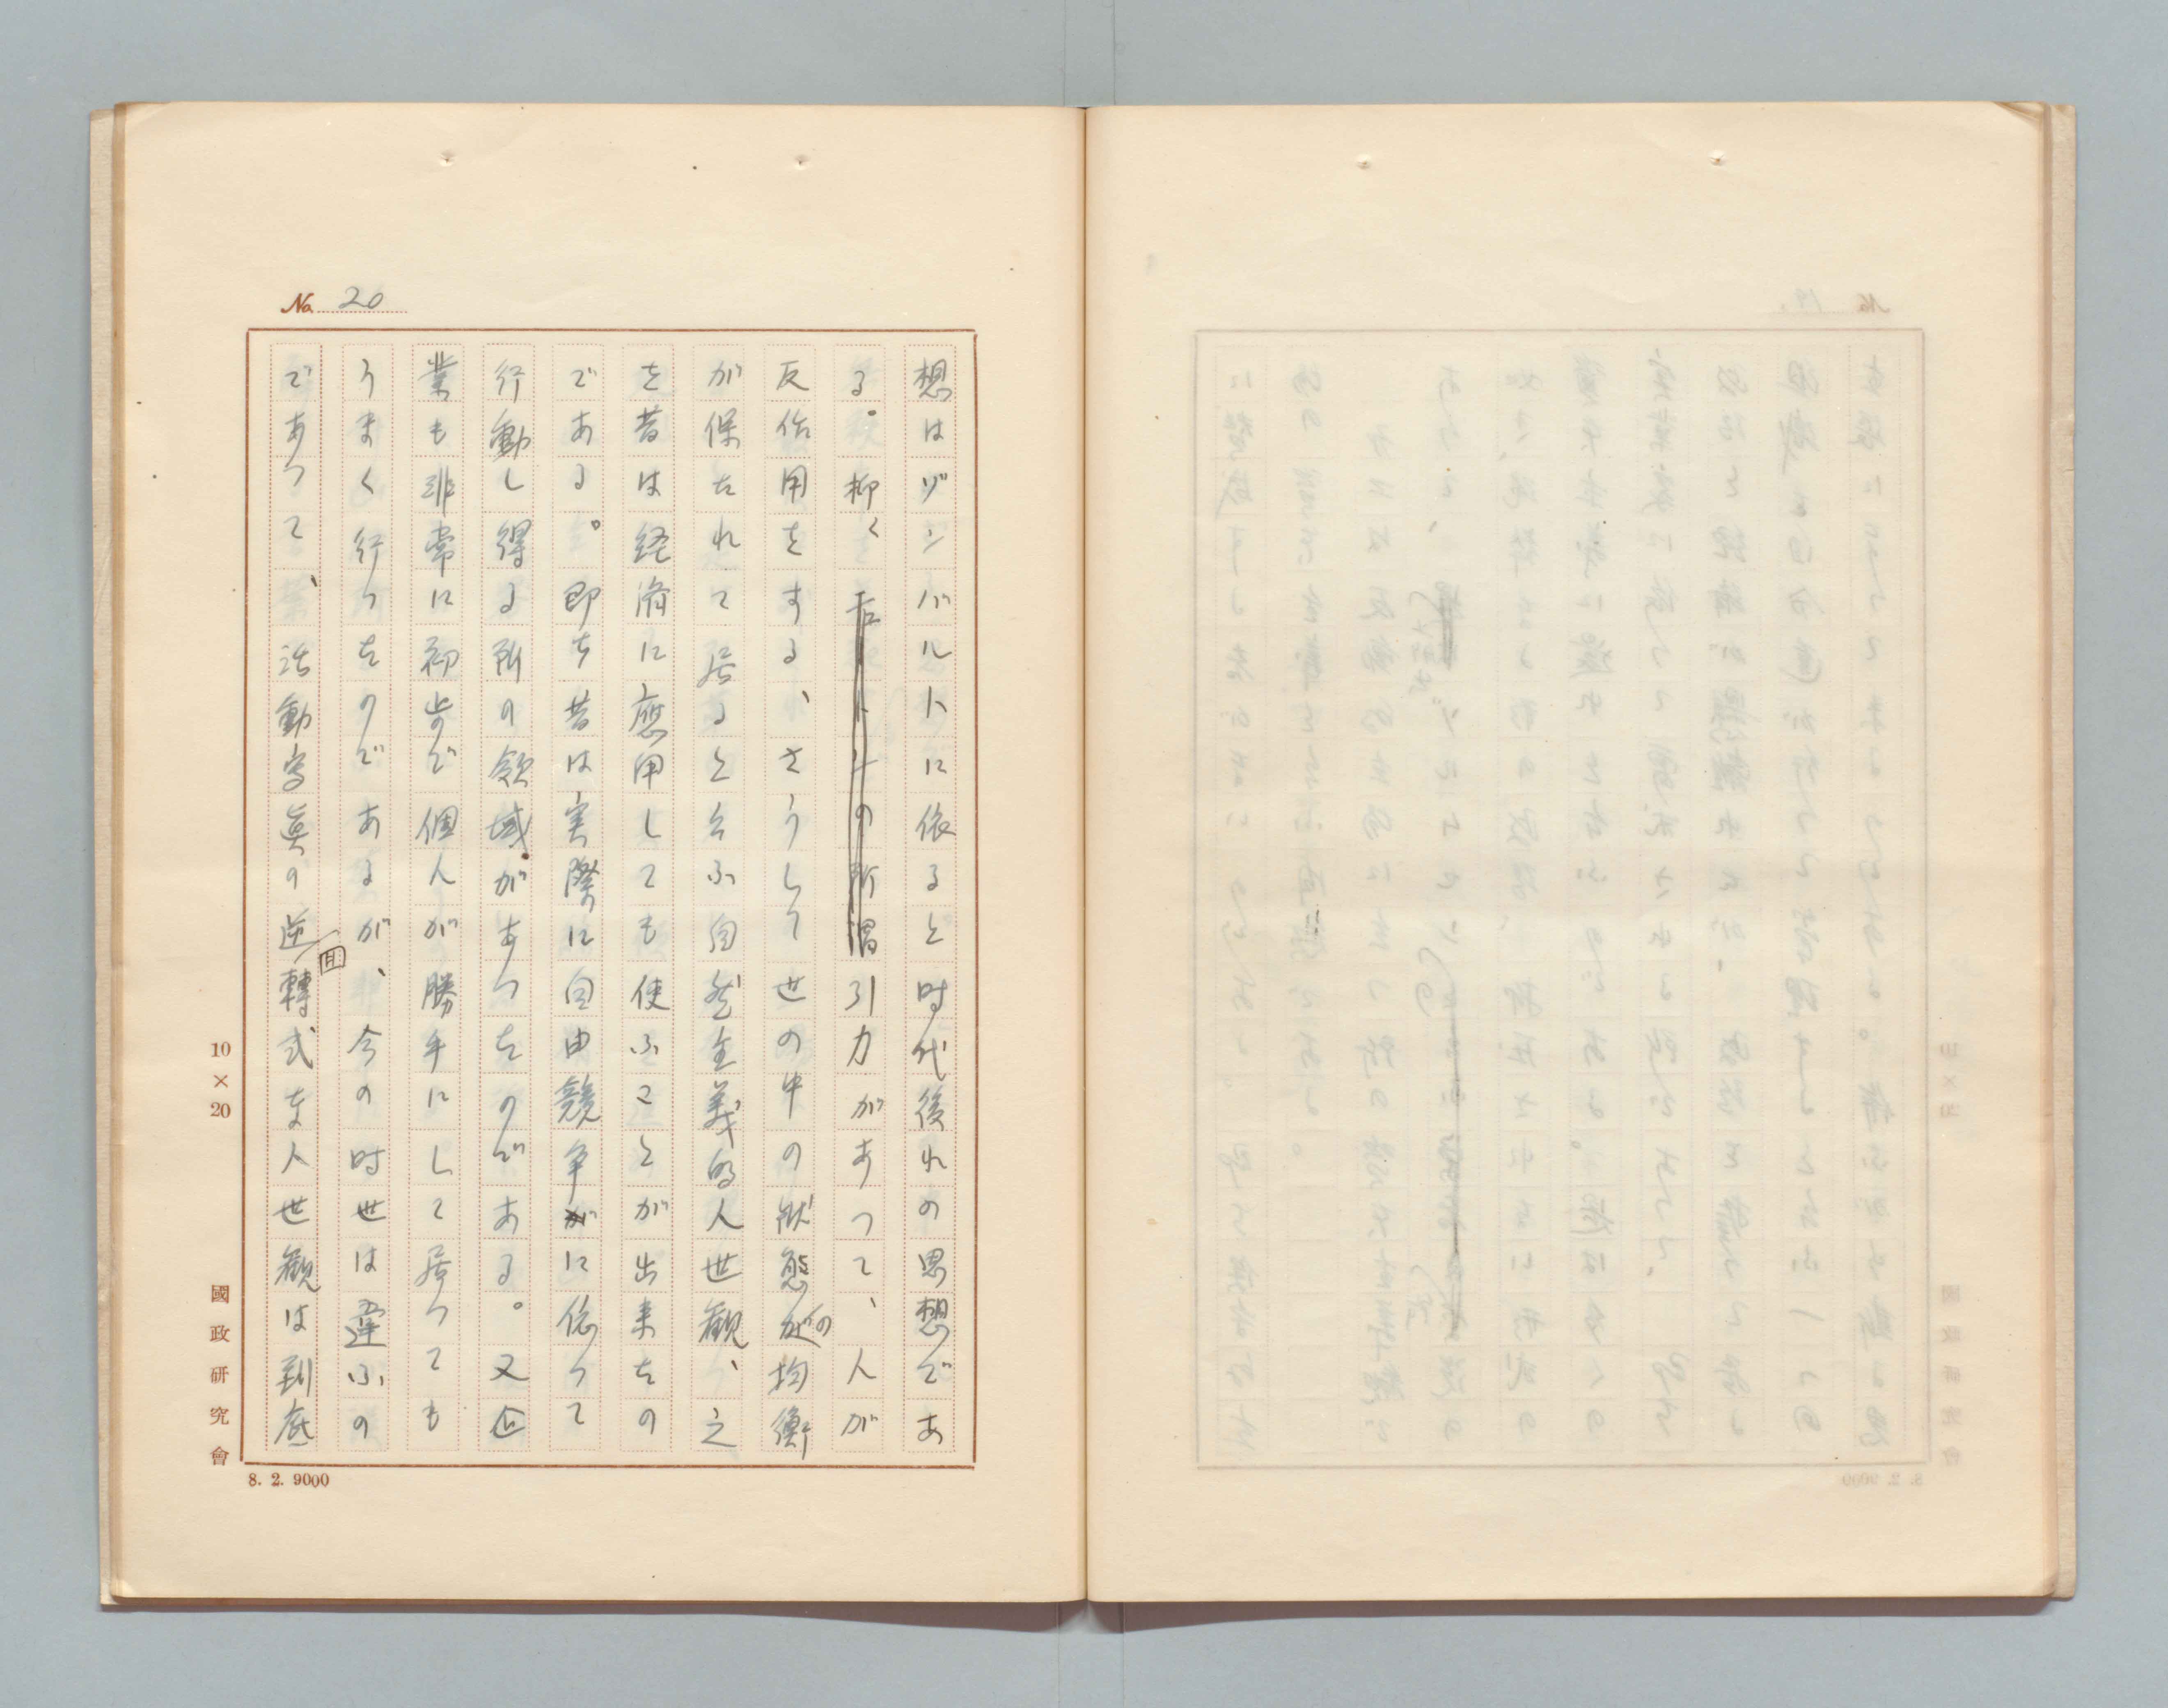 No. 20
想はゾンバルトに依ると時代後れの思想であ
る。抑〻ニュートンの所謂引力があつて、人が
反作用をする、さうして世の中の状態がの均衡
が保たれて居ると云ふ自然主義的人世観、之
を昔は経済に應用しても使ふことが出来たの
である。即ち昔は実際に自由競争がに依つて
行動し得る所の領域があつたのである。又企
業も非常に初歩で個人が勝手にして居つても
うまく行つたのであるが、今の時世は違ふの
であつて、活動写真の逆回轉式な人世観は到底
10×20
國政研究會
8. 2. 9000